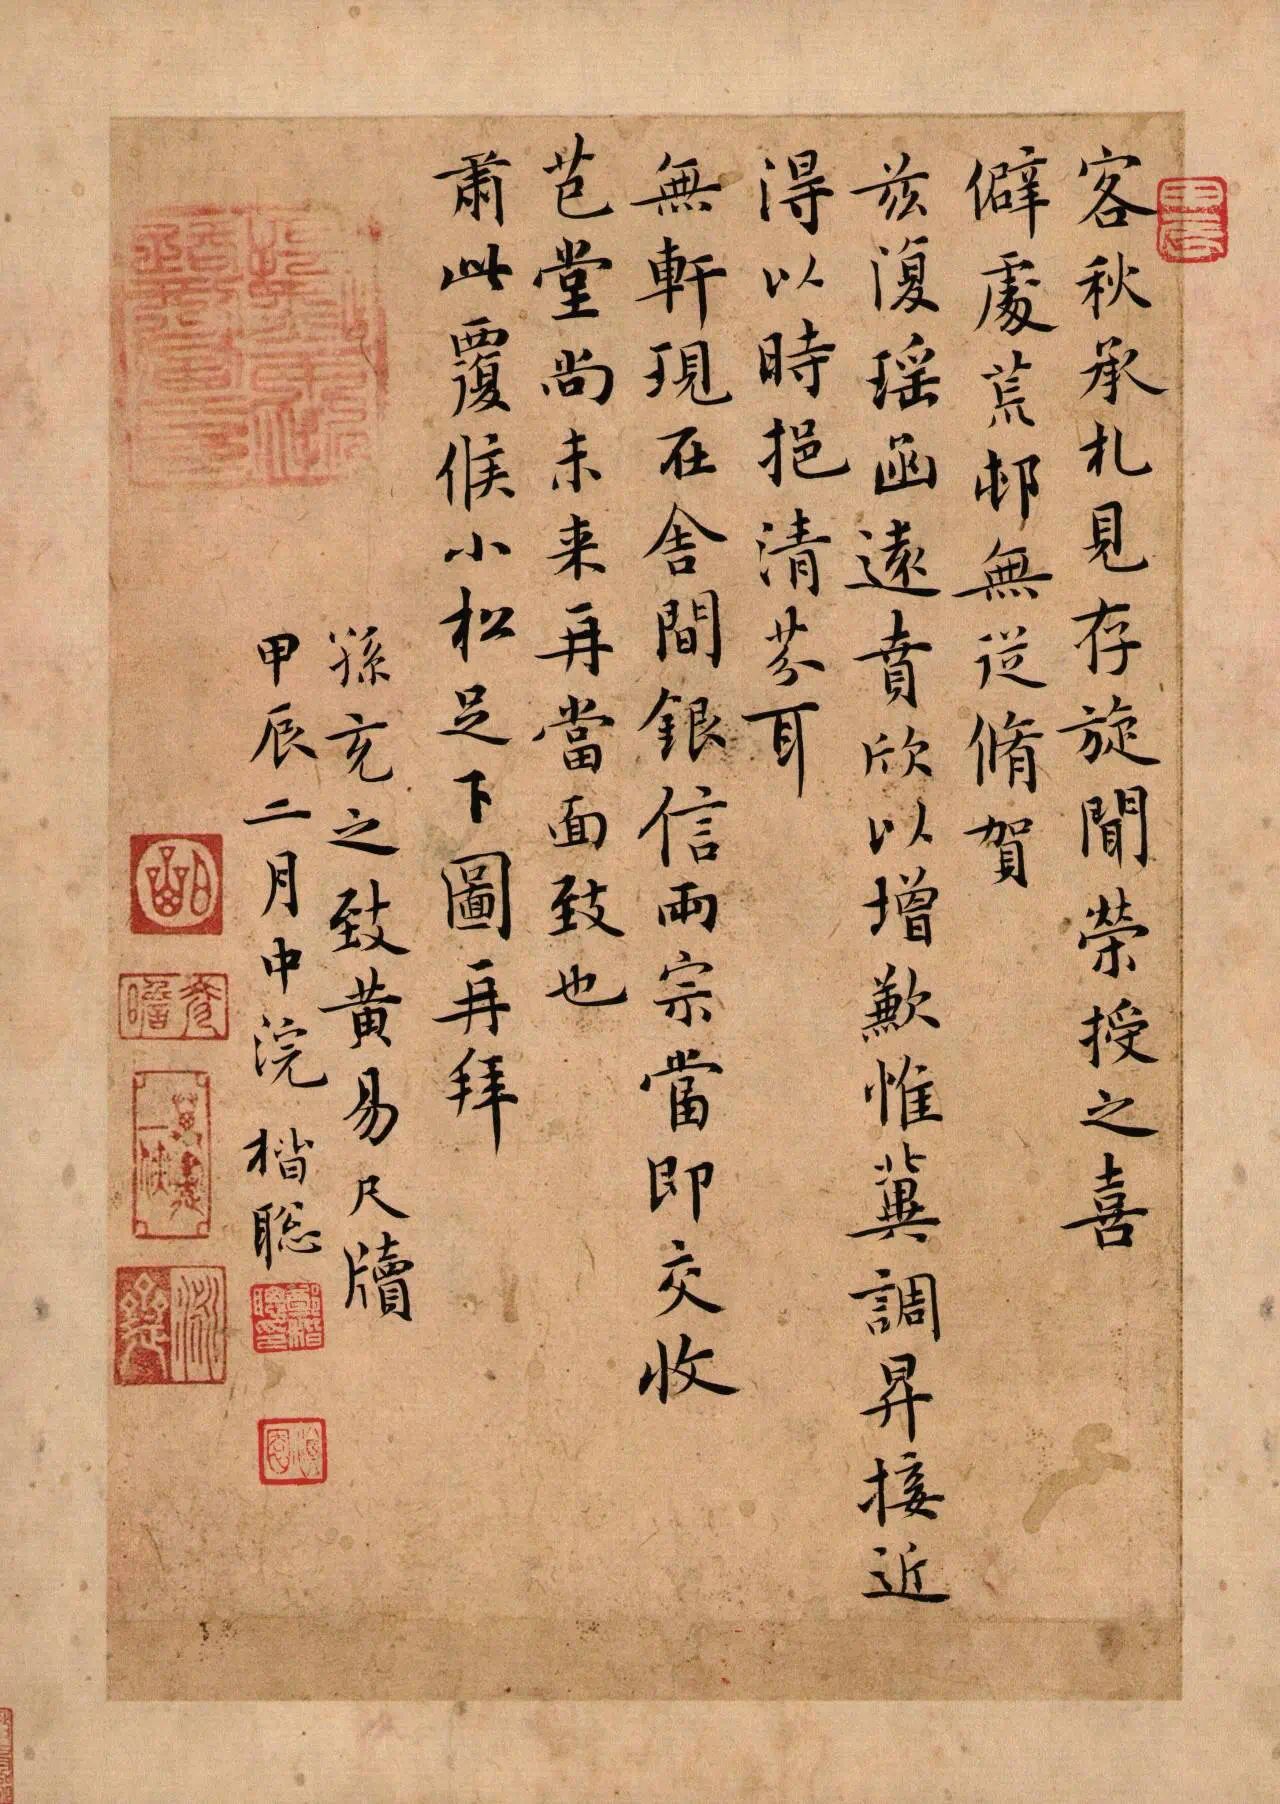 客秋承札見存旋聞榮授之喜
僻處荒邨無從脩賀
兹復瑶函遠賁欣以增歉惟冀調昇接近
得以時挹清芬耳
無軒現在舍間銀信兩宗當即交收
芑堂尚未来再當面致也
肅此覆候小松足下圖再拜
孫亥之致黄易尺牘
甲辰二月中浣 楷聡